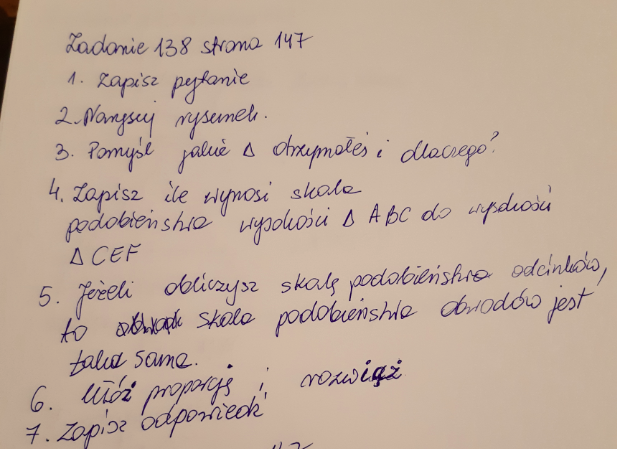 Zadanie 138 strona 147
1. Zapisz pytanie
2. Narysuj rysunek.
3. Pomyśl jakie Δ otrzymałeś i dlaczego?
4. Zapisz ile wynosi skala
podobieństwa wysokości Δ ABC do wysokości
Δ CEF
5. Jeżeli obliczysz skalę podobieństwa odcinków,
to skala podobieństwa obwodów jest
taka sama.
6. Ułóż proporcję i rozwiąż
7. Zapisz odpowiedź